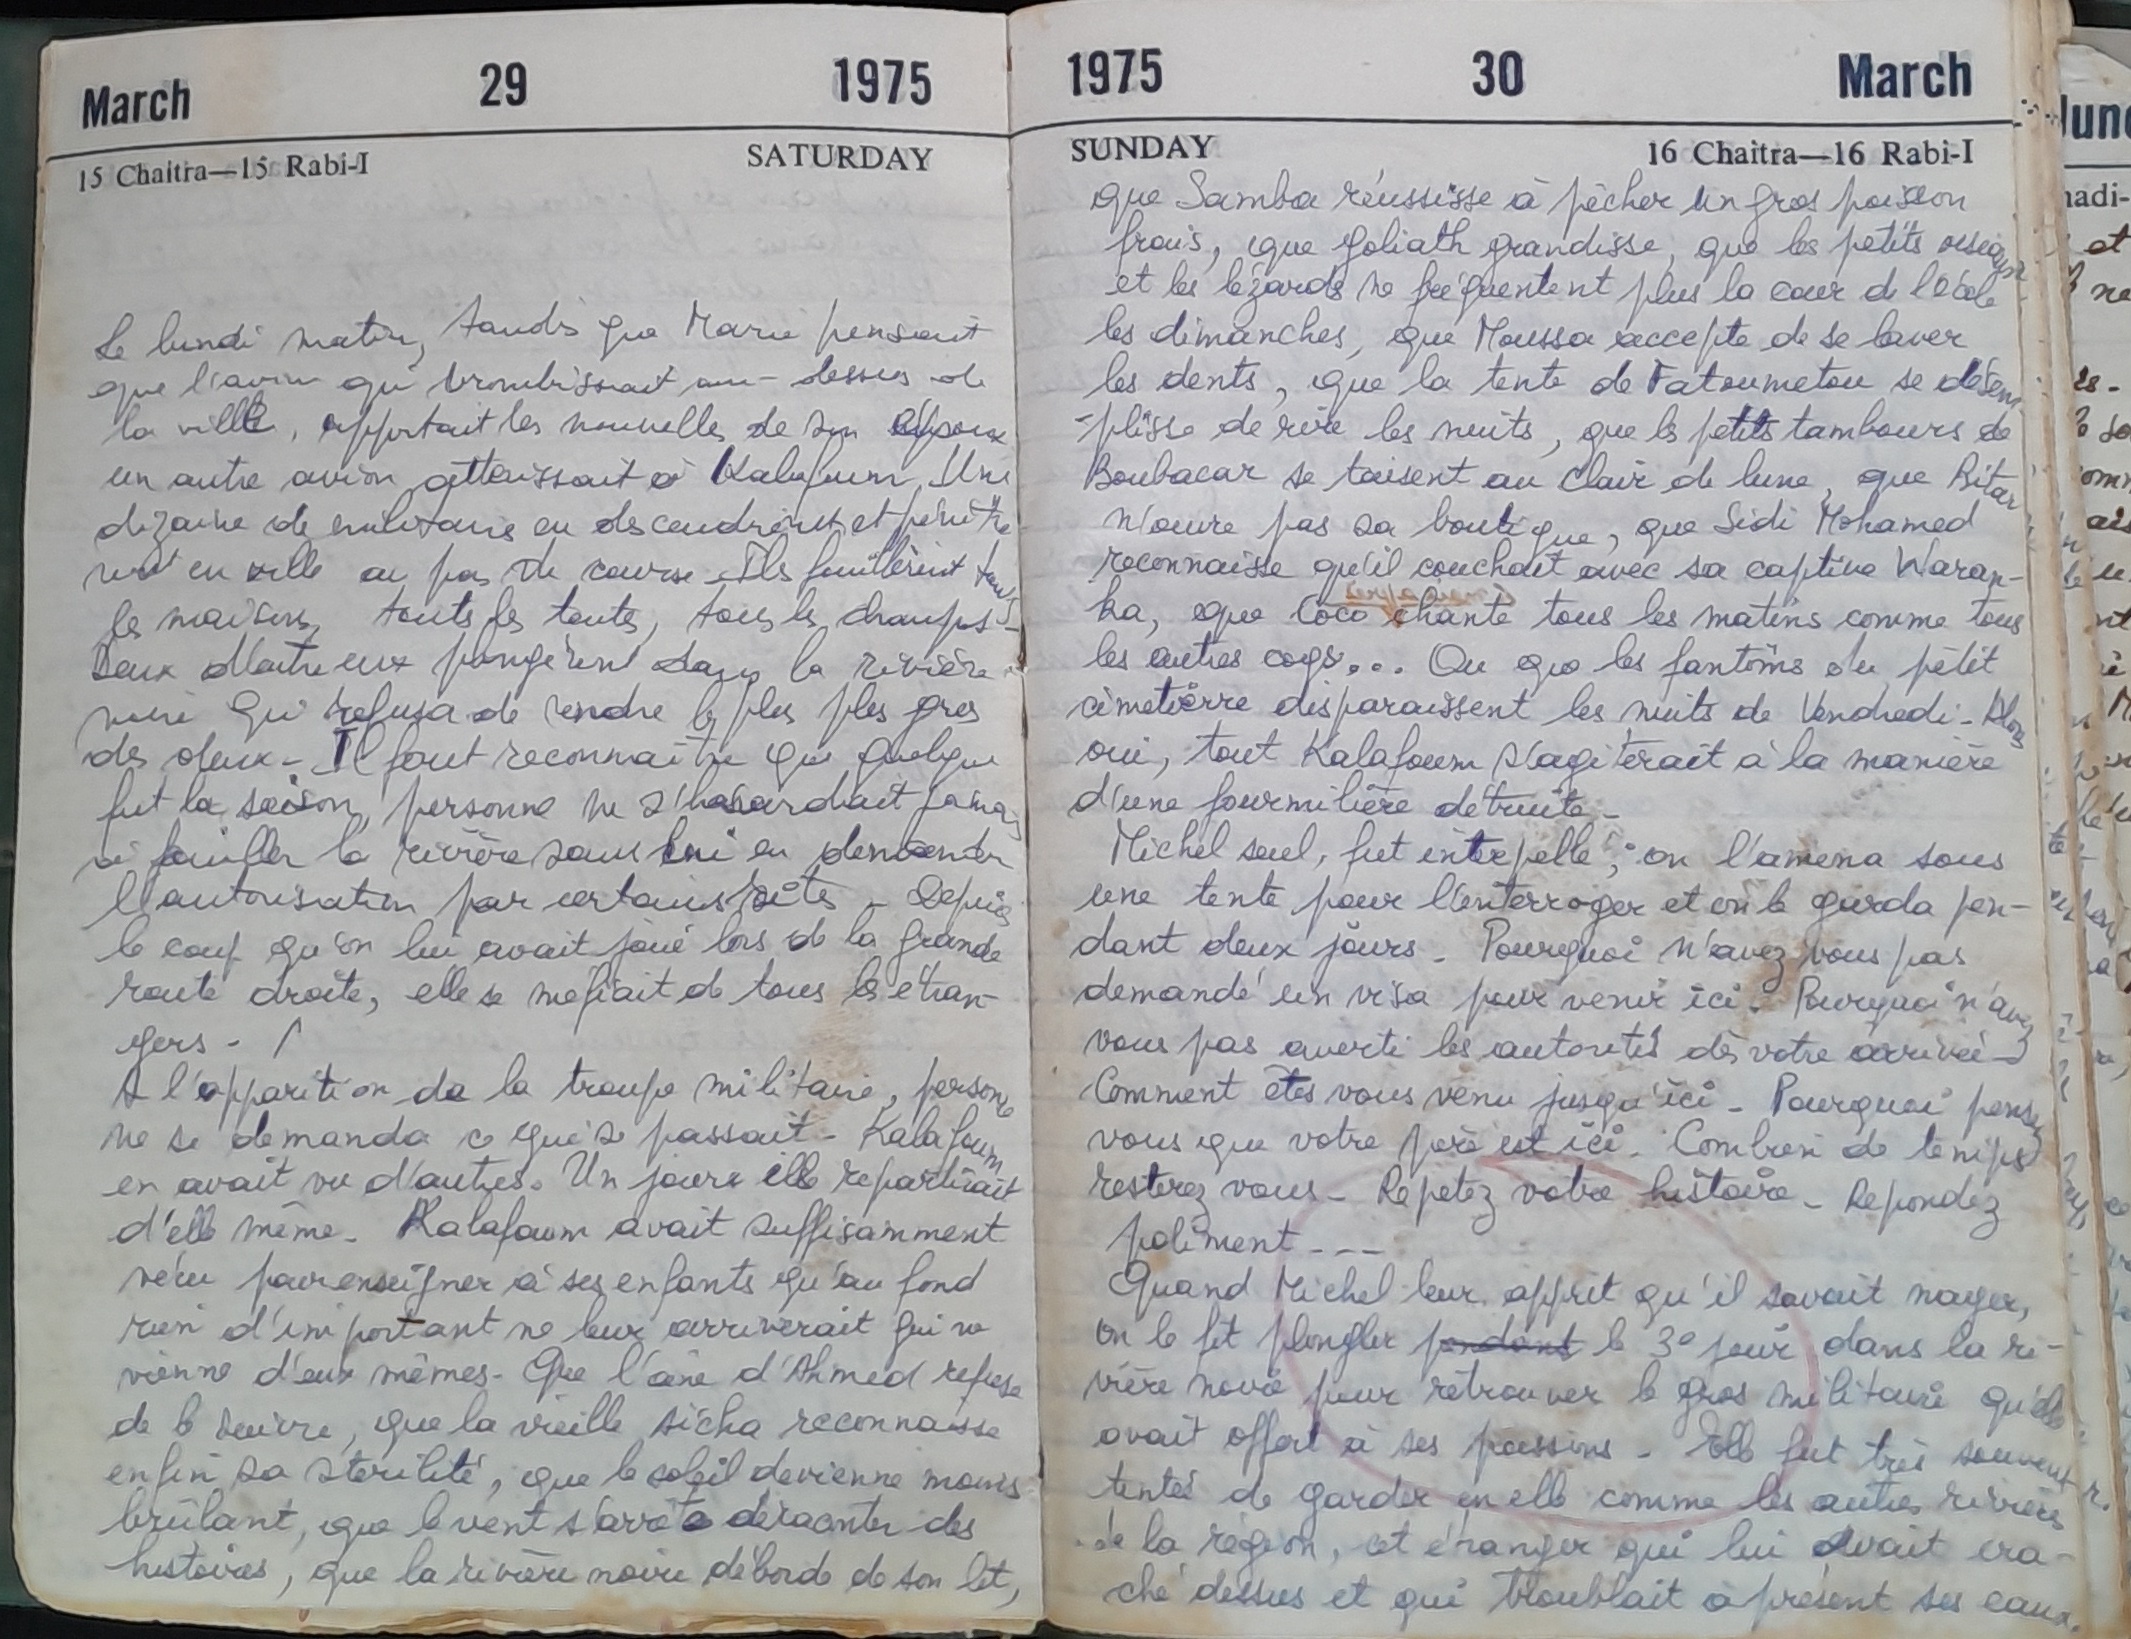 March 29 1975
15 Chaitra—15 Rabi-I SATURDAY
Le lundi matin, tandis que Marie pensait
que l'avion qui vrombissait au-dessus de
la ville, apportait les nouvelles de son époux
un autre avion attérissait à Kalafoum. Une
dizaine de militaires en descendirent et pénétrè
rent en ville au pas de course. Ils fouillèrent toutes
les maisons, toutes les tentes, tous les champs-
Deux d'entre eux plongèrent dans la rivière
noire qui refusa de rendre le plus plus gros
des deux - Il faut reconnaître que quelque
fut la saison, personne ne s'hasardait jamais
à fouiller la rivière sans lui en demander
l'autorisation par certains rites - Depuis
le coup qu'on lui avait joué lors de la grande
route droite, elle se méfiait de tous les étran-
gers - /
A l'apparition de la troupe militaire, personne
ne se demanda ce qui se passait - Kalafoum
en avait vu d'autres. Un jour elle repartirait
d'elle même - Kalafoum avait suffisamment
vécu pour enseigner à ses enfants qu'au fond
rien d'important ne leur arriverait qui ne
vienne d'eux mêmes - Que l'âne d'Ahmed refuse
de le suivre, que la vieille Aïcha reconnaisse
enfin sa stérilité, que le soleil devienne moins
brûlant, que le vent s'arrête de raconter des
histoires, que la rivière noire déborde de son lit,
1975 30 March
SUNDAY 16 Chaitra—16 Rabi-I
que Samba réussisse à pêcher un gros poisson
frais, que Goliath grandisse, que les petits oiseaux
et les lézards ne fréquentent plus la cour de l'école
les dimanches, que Moussa accepte de se laver
les dents, que la tente de Fatoumetou se désem
-plisse de rire les nuits, que les petits tambours de
Boubacar se taisent au clair de lune, que Bitar
n'ouvre pas sa boutique, que Sidi Mohamed
reconnaisse qu'il couchait avec sa captive Waran-
ka, que Coco chante tous les matins comme tous
les autres coqs... Ou que les fantôms du petit
cimetièrre disparaissent les nuits de Vendredi - Alors
oui, tout Kalafoum s'agiterait à la manière
d'une fourmilière détruite -
Michel seul, fut interpellé ; on l'amena sous
une tente pour l'interroger et on le garda pen-
dant deux jours - Pourquoi n'avez vous pas
demandé un visa pour venir ici. Pourquoi n'avez
vous pas averti les autorités dès votre arrivée -
Comment êtes vous venu jusqu'ici - Pourquoi pensez
vous que votre père est ici. Combien de temps
resterez vous - Repetez votre histoire - Repondez
poliment ---
Quand Michel leur apprit qu'il savait nager,
on le fit plonger pendant le 3e jour dans la ri-
vière noire pour retrouver le gros militaire qu'elle
avait offert à ses poissons - Elle fut très souvent
tentée de garder en elle comme les autres rivières
de la région, cet étranger qui lui avait cra-
ché dessus et qui troublait à présent ses eaux.